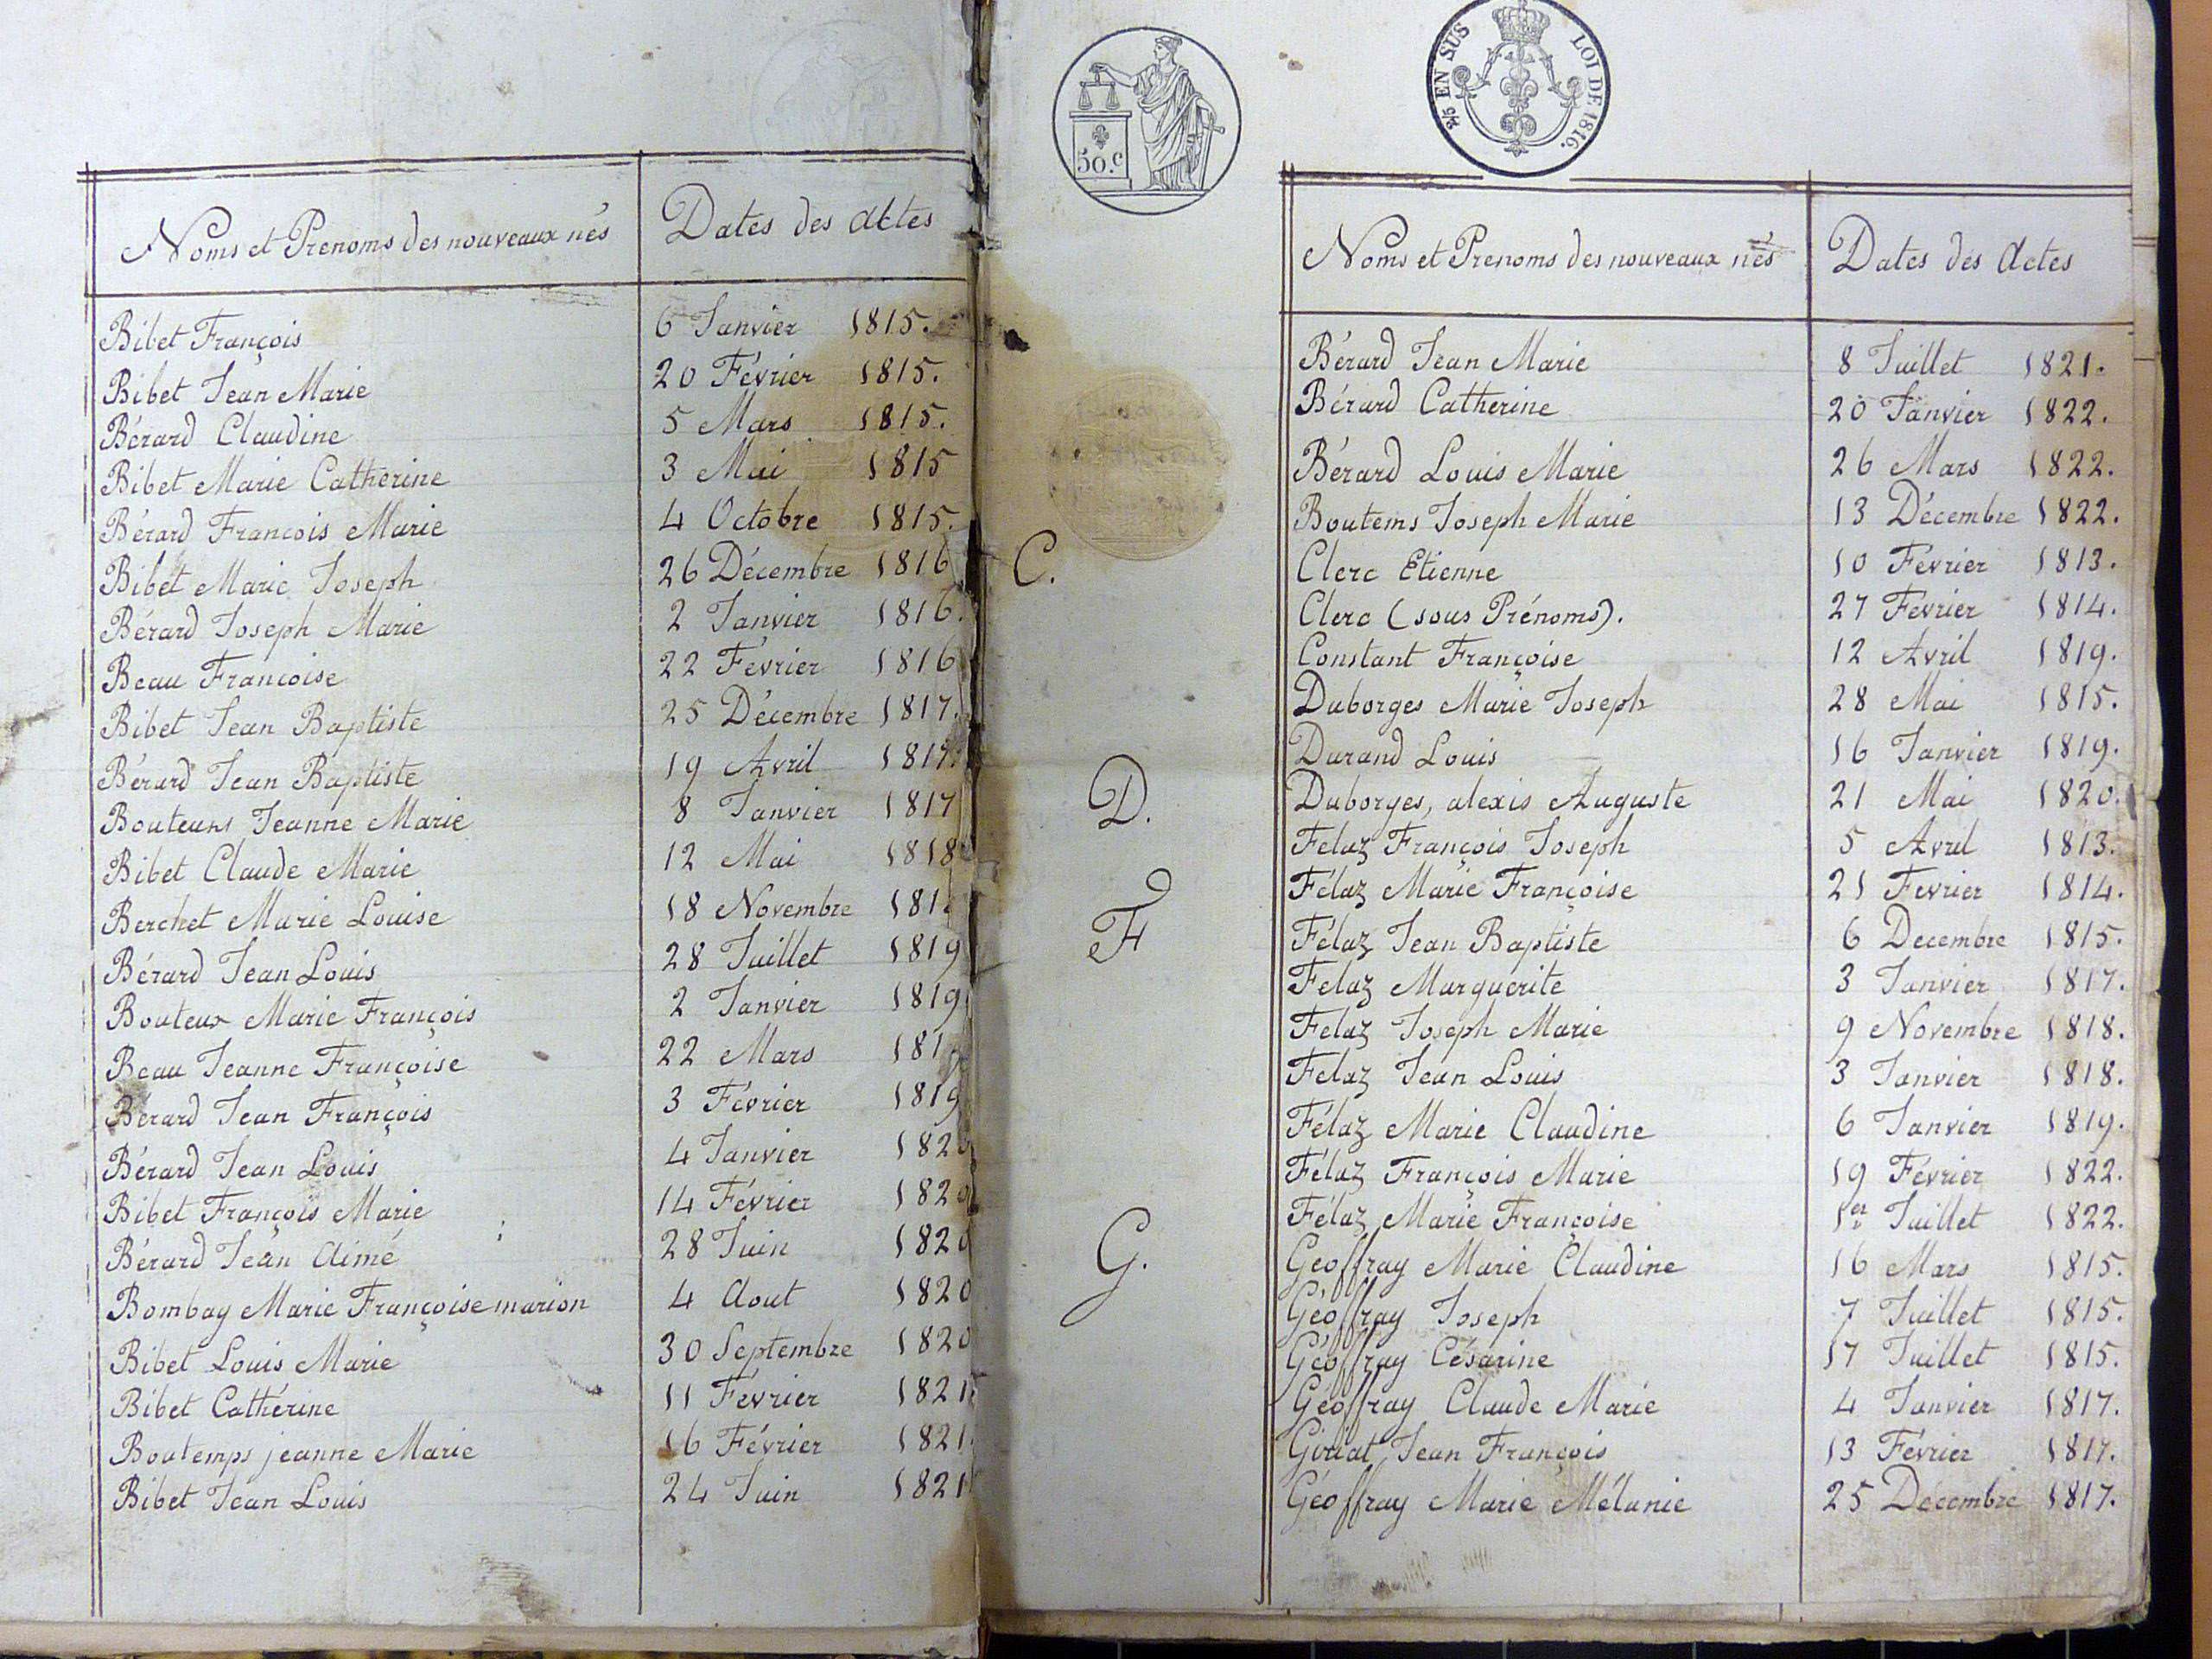 Noms et Prenoms des nouveaux nés Dates des Actes
Bibet François 6 Janvier 1815.
Bibet Jean Marie 20 Février 1815.
Bérard Claudine 5 Mars 1815.
Bibet Marie Catherine 3 Mai 1815
Bérard François Marie 4 Octobre 1815.
Bibet Marie Joseph 26 Décembre 1816
Bérard Joseph Marie 2 Janvier 1816.
Beau Francoise 22 Février 1816
Bibet Jean Baptiste 25 Décembre 1817.
Bérard Jean Baptiste 19 Avril 1817.
Bouteurs Jeanne Marie 8 Janvier 1817
Bibet Claude Marie 12 Mai 1818
Berchet Marie Louise 18 Novembre
Bérard Jean Louis 28 Juillet 1819
Bouteux Marie François 2 Janvier 1819
Beau Jeanne Françoise 22 Mars 1819
Bérard Jean François 3 Février 1819
Bérard Jean Louis 4 Janvier 1820
Bibet François Marie 14 Février 1820
Bérard Jean Aimé 28 Juin 1820
Bombay Marie Françoise marion 4 Aout 1820
Bibet Louis Marie 30 Septembre 1820
Bibet Cathérine 11 Février 1821
Boutemps jeanne Marie 16 Février 1821.
Bibet Jean Louis 24 Juin 1821
50.c
2/5 EN SUS LOI DE 1816.
Noms et Prenoms des nouveaux nés Dates des Actes
Bérard Jean Marie 8 Juillet 1821.
Bérard Catherine 20 Janvier 1822.
Bérard Louis Marie 26 Mars 1822.
Boutems Joseph Marie 13 Décembre 1822.
C. Clerc Etienne 10 Fevrier 1813.
Clerc (sous Prénoms). 27 Fevrier 1814.
Constant Françoise 12 Avril 1819.
Duborges Marie Joseph 28 Mai 1815.
Durand Louis 16 Janvier 1819.
D. Duborges, alexis Auguste 21 Mai 1820.
Felaz François Joseph 5 Avril 1813.
Félaz Marie Françoise 21 Fevrier 1814.
F Félaz Jean Baptiste 6 Decembre 1815.
Felaz Marguerite 3 Janvier 1817.
Felaz Joseph Marie 9 Novembre 1818.
Felaz Jean Louis 3 Janvier 1818.
Félaz Marie Claudine 6 Janvier 1819.
Félaz François Marie 19 Février 1822.
Félaz Marie Françoise 1er Juillet 1822.
G. Geoffray Marie Claudine 16 Mars 1815.
Géoffray Joseph 7 Juillet 1815.
Géoffray Césarine 17 Juillet 1815.
Géoffray Claude Marie 4 Janvier 1817.
Giriat Jean François 13 Février 1817.
Géoffray Marie Mélanie 25 Décembre 1817.